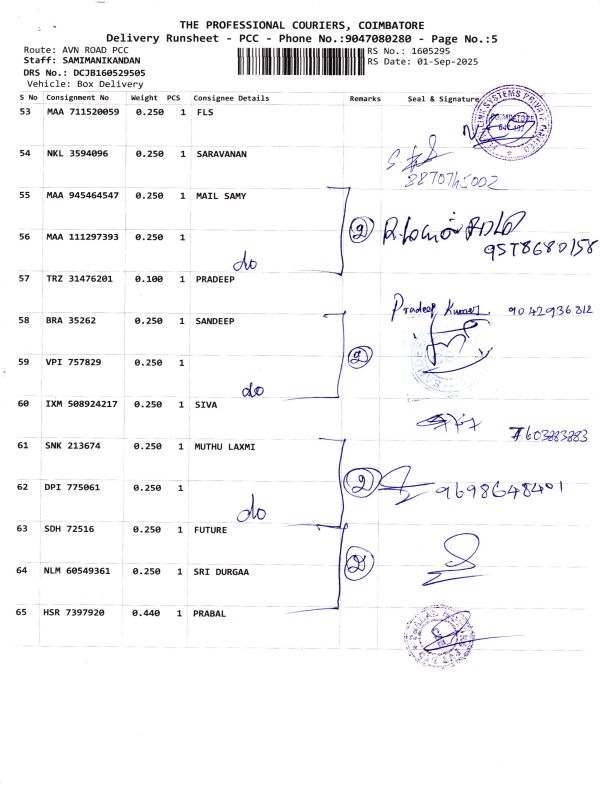 THE PROFESSIONAL COURIERS, COIMBATORE
Delivery Runsheet - PCC - Phone No.:9047080280 - Page No.:5
Route: AVN ROAD PCC
RS No.: 1605295
Staff: SAMIMANIKANDAN
RS Date: 01-Sep-2025
DRS No.: DCJB160529505
Vehicle: Box Delivery
S No Consignment No Weight PCS Consignee Details Remarks Seal & Signature
53 MAA 711520059 0.250 1 FLS
54 NKL 3594096 0.250 1 SARAVANAN
55 MAA 945464547 0.250 1 MAIL SAMY
56 MAA 111297393 0.250 1
do
②
9578680158
57 TRZ 31476201 0.100 1 PRADEEP
Pradeep Kumar 9042936812
58 BRA 35262 0.250 1 SANDEEP
59 VPI 757829 0.250 1
do
②
60 IXM 508924217 0.250 1 SIVA
61 SNK 213674 0.250 1 MUTHU LAXMI
62 DPI 775061 0.250 1
do
② 9698648401
63 SDH 72516 0.250 1 FUTURE
64 NLM 60549361 0.250 1 SRI DURGAA
②
65 HSR 7397920 0.440 1 PRABAL